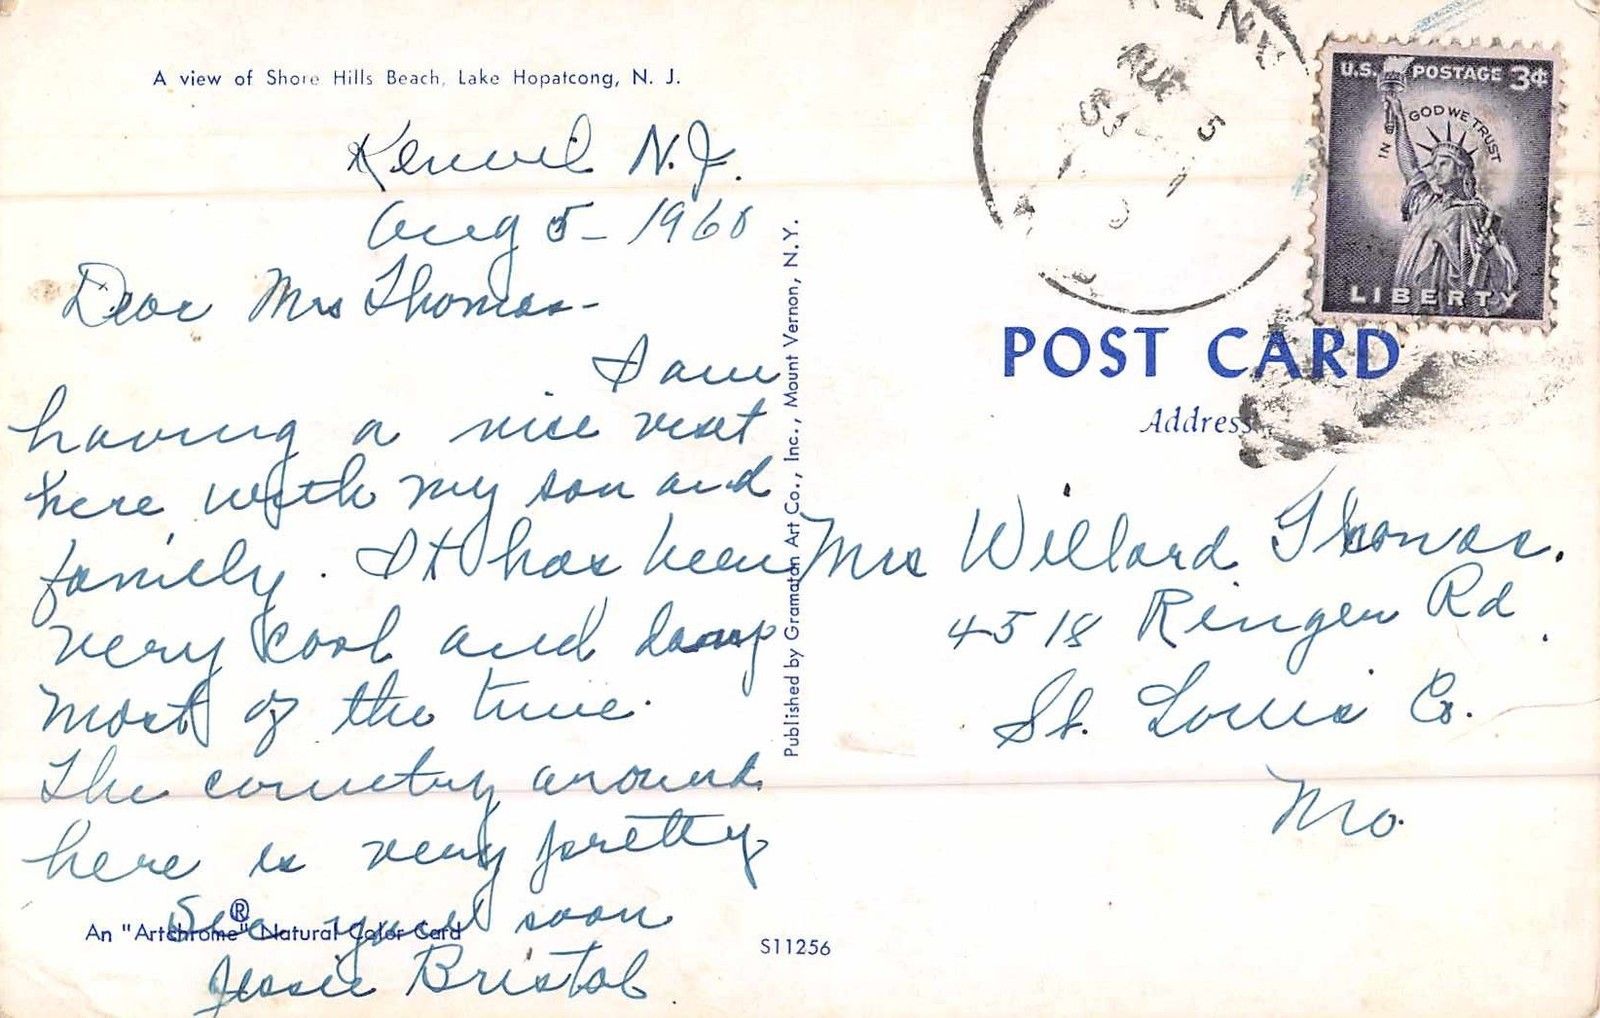 A view of Shore Hills Beach, Lake Hopatcong, N. J.
Kenvil N.J.
Aug 5- 1960
Dear Mrs Thomas-
I am
having a nice visit
here with my son and
family. It has been
very cool and damp
most of the time.
The country around
here is very pretty
See you soon
Jessie Bristol
An "Artchrome"® Natural Color Card
S11256
Published by Gramatan Art Co., Inc., Mount Vernon, N.Y.
N.Y.
AUG 5
U.S. POSTAGE 3¢
IN GOD WE TRUST
LIBERTY
POST CARD
Address
Mrs Willard Thomas.
4518 Ringer Rd.
St. Louis Co.
Mo.